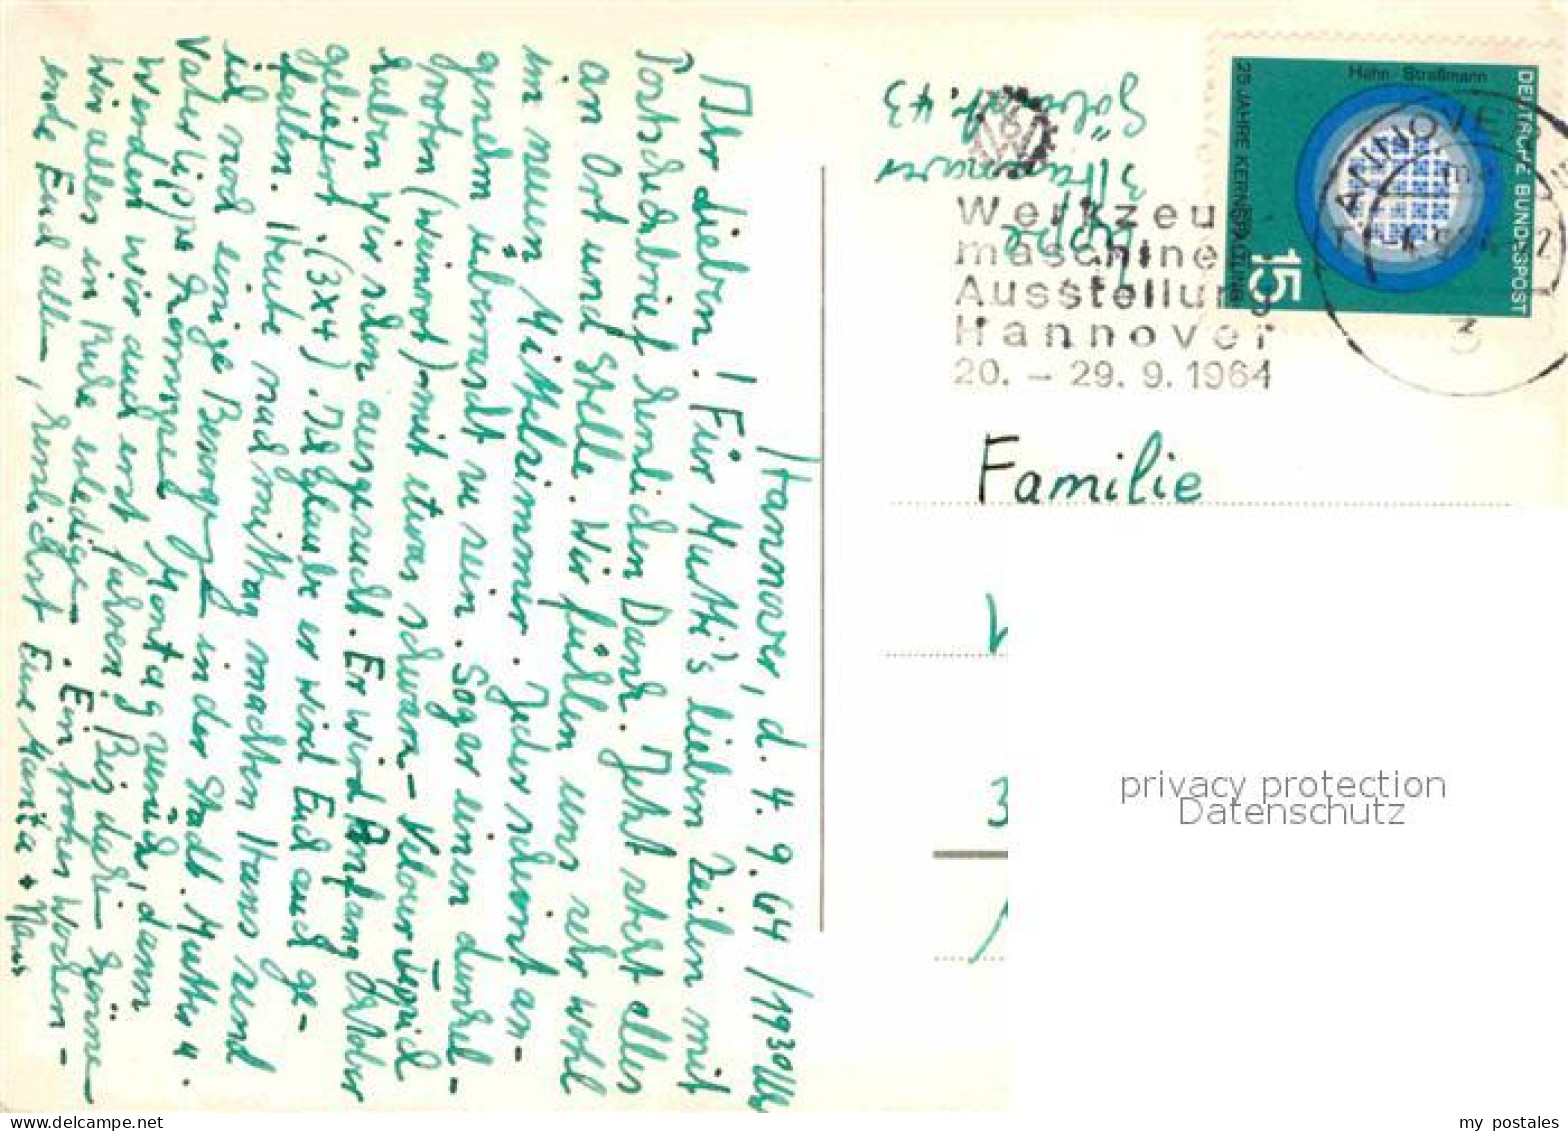 Hannover, d. 4. 9. 64 / 19³⁰ Uhr
Ihr Lieben! Für Mutti's lieben Zeilen mit
Postscheckbrief herzlichen Dank. Jetzt steht alles
an Ort und Stelle. Wir fühlen uns sehr wohl
im neuen Mittelzimmer. Jeder scheint an-
genehm überrascht zu sein. Sogar einen dunkel-
roten (weinrot) – mit etwas schwarz – Velour Teppich
haben wir schon ausgesucht. Er wird Anfang Oktober
geliefert. (3x4). Ich glaube er wird Euch auch ge-
fallen. Heute nachmittag machten Hans und
ich noch einige Besorgungen in der Stadt. Mutter u.
Vater kommen Montag zurück, dann
werden wir auch erst fahren. Bis dahin können
wir alles in Ruhe erledigen. Ein frohes Wochen-
ende Euch allen, herzlichst Eure Marita + Hans
Hoppe
3 Hannover
Göhrdestr. 43
Werkzeug
maschinen
Ausstellung
Hannover
20. – 29. 9. 1964
HANNOVER
3
DEUTSCHE BUNDESPOST
Hahn - Straßmann
25 JAHRE KERNSPALTUNG
15
Familie
3
privacy protection
Datenschutz
my postales